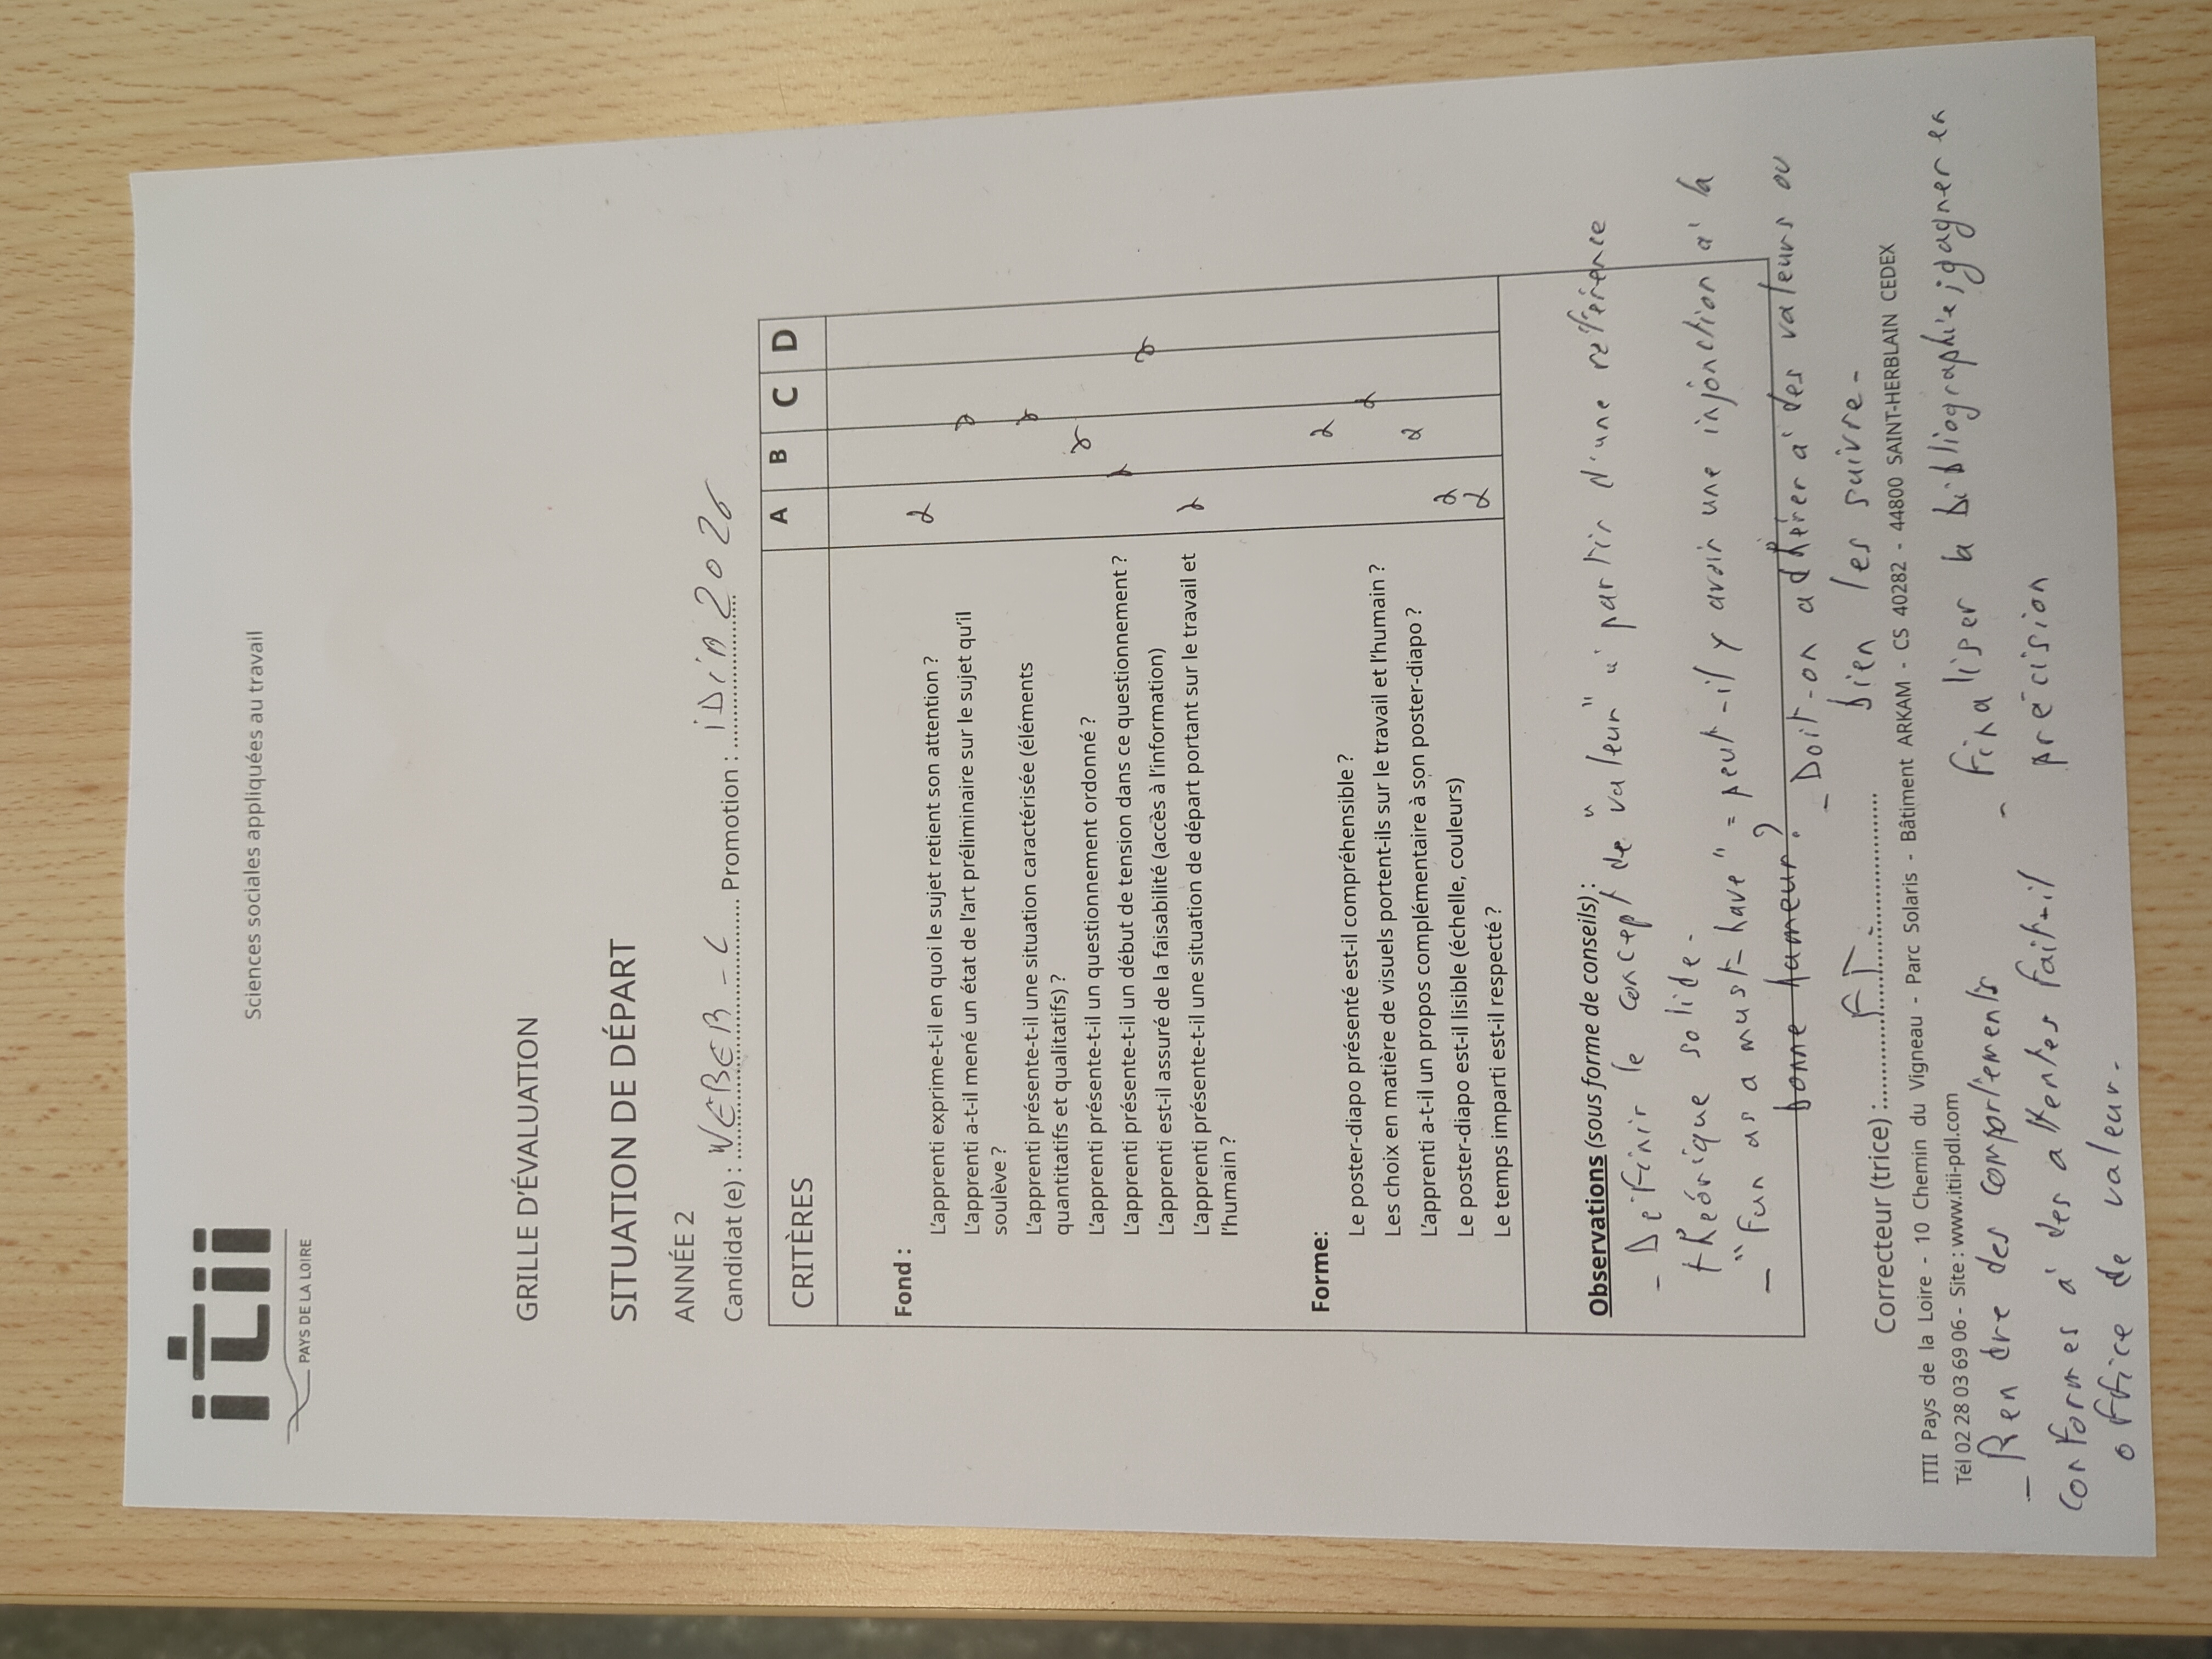 itii
PAYS DE LA LOIRE
Sciences sociales appliquées au travail
GRILLE D'ÉVALUATION
SITUATION DE DÉPART
ANNÉE 2
Candidat (e) : WEBER - L Promotion : 2026
CRITÈRES A B C D
Fond :
L'apprenti exprime-t-il en quoi le sujet retient son attention ?
L'apprenti a-t-il mené un état de l'art préliminaire sur le sujet qu'il
soulève ?
L'apprenti présente-t-il une situation caractérisée (éléments
quantitatifs et qualitatifs) ?
L'apprenti présente-t-il un questionnement ordonné ?
L'apprenti présente-t-il un début de tension dans ce questionnement ?
L'apprenti est-il assuré de la faisabilité (accès à l'information)
L'apprenti présente-t-il une situation de départ portant sur le travail et
l'humain ?
Forme:
Le poster-diapo présenté est-il compréhensible ?
Les choix en matière de visuels portent-ils sur le travail et l'humain ?
L'apprenti a-t-il un propos complémentaire à son poster-diapo ?
Le poster-diapo est-il lisible (échelle, couleurs)
Le temps imparti est-il respecté ?
Observations (sous forme de conseils) :
- Définir le concept de "valeur" à partir d'une référence
théorique solide.
- "Fun as a must-have" = peut-il y avoir une injonction à la
bonne humeur ?
- Doit-on adhérer à des valeurs ou
bien les suivre-
Correcteur (trice) : FT
ITII Pays de la Loire - 10 Chemin du Vigneau - Parc Solaris - Bâtiment ARKAM - CS 40282 - 44800 SAINT-HERBLAIN CEDEX
Tél 02 28 03 69 06 - Site : www.itii-pdl.com
- Rendre des comportements
conformes à des attentes fait-il
office de valeur-
- Finaliser la bibliographie, gagner en
précision